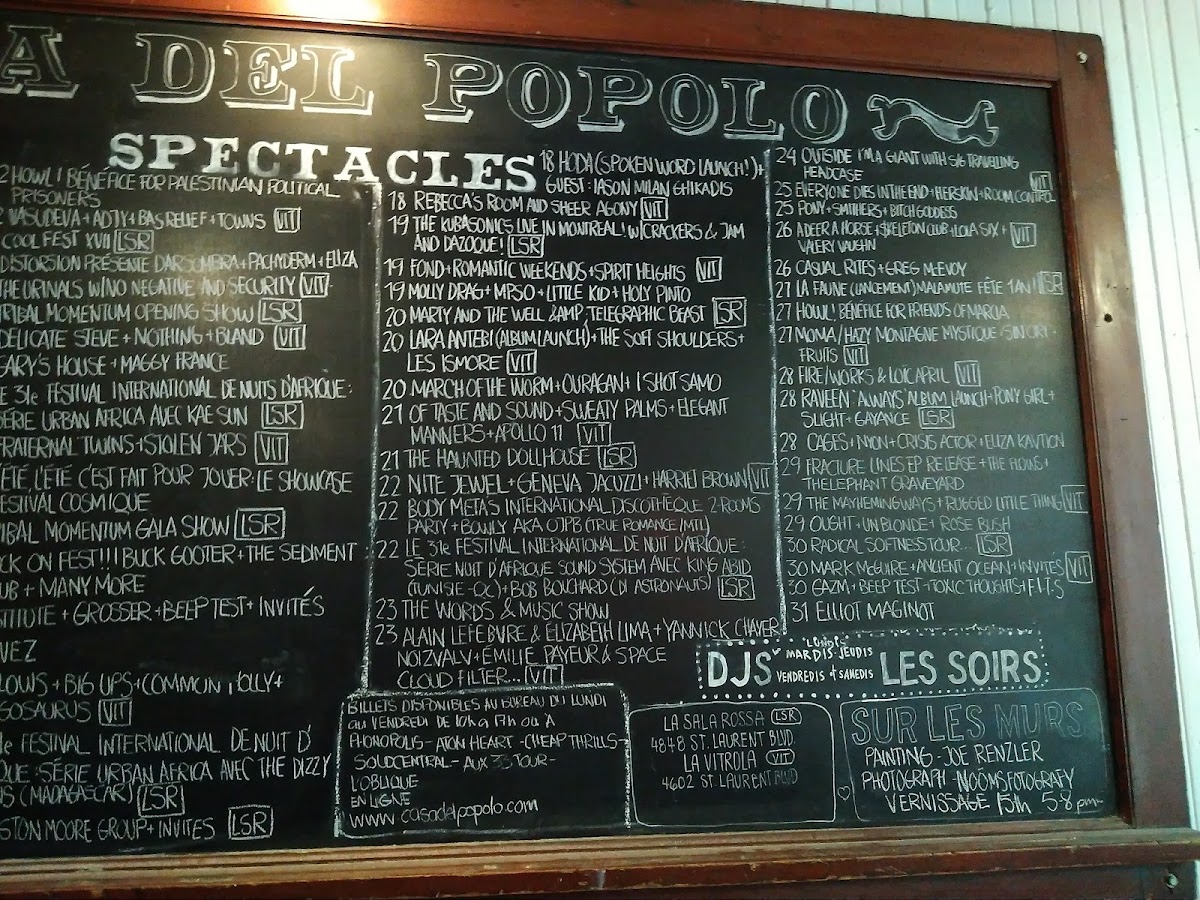 A DEL POPOLO
SPECTACLES
2 HOWL! BÉNÉFICE FOR PALESTINIAN POLITICAL
PRISONERS
2 VASUDEVA + ADJY + BAS RELIEF + TOWNS VIT
COOL FEST XVII LSR
DISTORSION PRÉSENTE DARSOMBRA + PACHYDERM + ELIZA
THE URINALS W/NO NEGATIVE AND SECURITY VIT
TRIBAL MOMENTUM OPENING SHOW LSR
DELICATE STEVE + NOTHING + BLAND VIT
GARY'S HOUSE + MAGGY FRANCE
LE 31e FESTIVAL INTERNATIONAL DE NUITS D'AFRIQUE:
SÉRIE URBAN AFRICA AVEC KAE SUN LSR
FRATERNAL TWINS + STOLEN JARS VIT
L'ÉTÉ, L'ÉTÉ C'EST FAIT POUR JOUER: LE SHOWCASE
FESTIVAL COSMIQUE
TRIBAL MOMENTUM GALA SHOW LSR
CK ON FEST!!! BUCK GOOTER + THE SEDIMENT
UB + MANY MORE
STITUTE + GROSSER + BEEP TEST + INVITÉS
VEZ
LOWS + BIG UPS + COMMON HOLLY +
GOSAURUS VIT
1e FESTIVAL INTERNATIONAL DE NUIT D'
QUE: SÉRIE URBAN AFRICA AVEC THE DIZZY
S (MADAGASCAR) LSR
STON MOORE GROUP + INVITES LSR
18 HODA (SPOKEN WORD LAUNCH!) +
GUEST: JASON MILAN GHIKADIS
18 REBECCA'S ROOM AND SHEER AGONY VIT
19 THE KUBASONICS LIVE IN MONTREAL! W/CRACKERS & JAM
AND DAZOQUE! LSR
19 FOND + ROMANTIC WEEKENDS + SPIRIT HEIGHTS VIT
19 MOLLY DRAG + MPSO + LITTLE KID + HOLY PINTO
20 MARTY AND THE WELL &AMP; TELEGRAPHIC BEAST LSR
20 LARA ANTEBI (ALBUM LAUNCH) + THE SOFT SHOULDERS +
LES ISMORE VIT
20 MARCH OF THE WORM + OURAGAN + I SHOT SAMO
21 OF TASTE AND SOUND + SWEATY PALMS + ELEGANT
MANNERS + APOLLO 11 VIT
21 THE HAUNTED DOLLHOUSE LSR
22 NITE JEWEL + GENEVA JACUZZI + HARRIET BROWN VIT
22 BODY META'S INTERNATIONAL DISCOTHÈQUE 2-ROOMS
PARTY + BOWLY AKA OJPB (TRUE ROMANCE/MTL)
22 LE 31e FESTIVAL INTERNATIONAL DE NUIT D'AFRIQUE:
SÉRIE NUIT D'AFRIQUE SOUND SYSTEM AVEC KING ABID
(TUNISIE-QC) + BOB BOUCHARD (DJ ASTRONAUTS) LSR
23 THE WORDS & MUSIC SHOW
23 ALAIN LEFEBVRE & ELIZABETH LIMA + YANNICK CHAYER
NOIZVALV + EMILIE PAYEUR & SPACE
CLOUD FILTER... VIT
24 OUTSIDE I'M A GIANT WITH S/G TRAVELLING
HEADCASE VIT
25 EVERYONE DIES IN THE END + HERSKIN + ROOM CONTROL
25 PONY + SMITHERS + BITCH GODDESS
26 A DEER A HORSE + SKELETON CLUB + LOLA SIX + VIT
VALERY VAUGHN
26 CASUAL RITES + GREG MCEVOY
27 LA FAUNE (LANCEMENT) MALAMUTE FÊTE 1 AN! LSR
27 HOWL! BÉNÉFICE FOR FRIENDS OF MARCIA
27 MOMA / HAZY MONTAGNE MYSTIQUE
FRUITS VIT
28 FIRE/WORKS & LOÏC APRIL VIT
28 RAVEEN "ALWAYS" ALBUM LAUNCH + PONY GIRL +
SLIGHT + GAYANCE LSR
28 CAGES + NYON + CRISIS ACTOR + ELIZA KAVTION
29 FRACTURE LINES EP RELEASE + THE FLOWS +
THELEPHANT GRAVEYARD
29 THE MAYHEMINGWAYS + RUGGED LITTLE THING VIT
29 OUGHT + UN BLONDE + ROSE BUSH
30 RADICAL SOFTNESS TOUR... LSR
30 MARK MCGUIRE + ANCIENT OCEAN + INVITÉS VIT
30 GAZM + BEEP TEST + TOXIC THOUGHTS + F.I.T.S
31 ELLIOT MAGINOT
BILLETS DISPONIBLES AU BUREAU DU LUNDI
AU VENDREDI DE 10h À 17h OU À
PHONOPOLIS - ATOM HEART - CHEAP THRILLS -
SOUNDCENTRAL - AUX 33 TOUR -
L'OBLIQUE
EN LIGNE
WWW casadelpopolo.com
LA SALA ROSSA LSR
4848 ST. LAURENT BLVD.
LA VITROLA VIT
4602 ST. LAURENT BLVD
DJS
MARDIS-JEUDIS
VENDREDIS + SAMEDIS
LES SOIRS
SUR LES MURS
PAINTING - JOE RENZLER
PHOTOGRAPH - NOÖMSFOTOGRAFY
VERNISSAGE 15th 5-8 pm